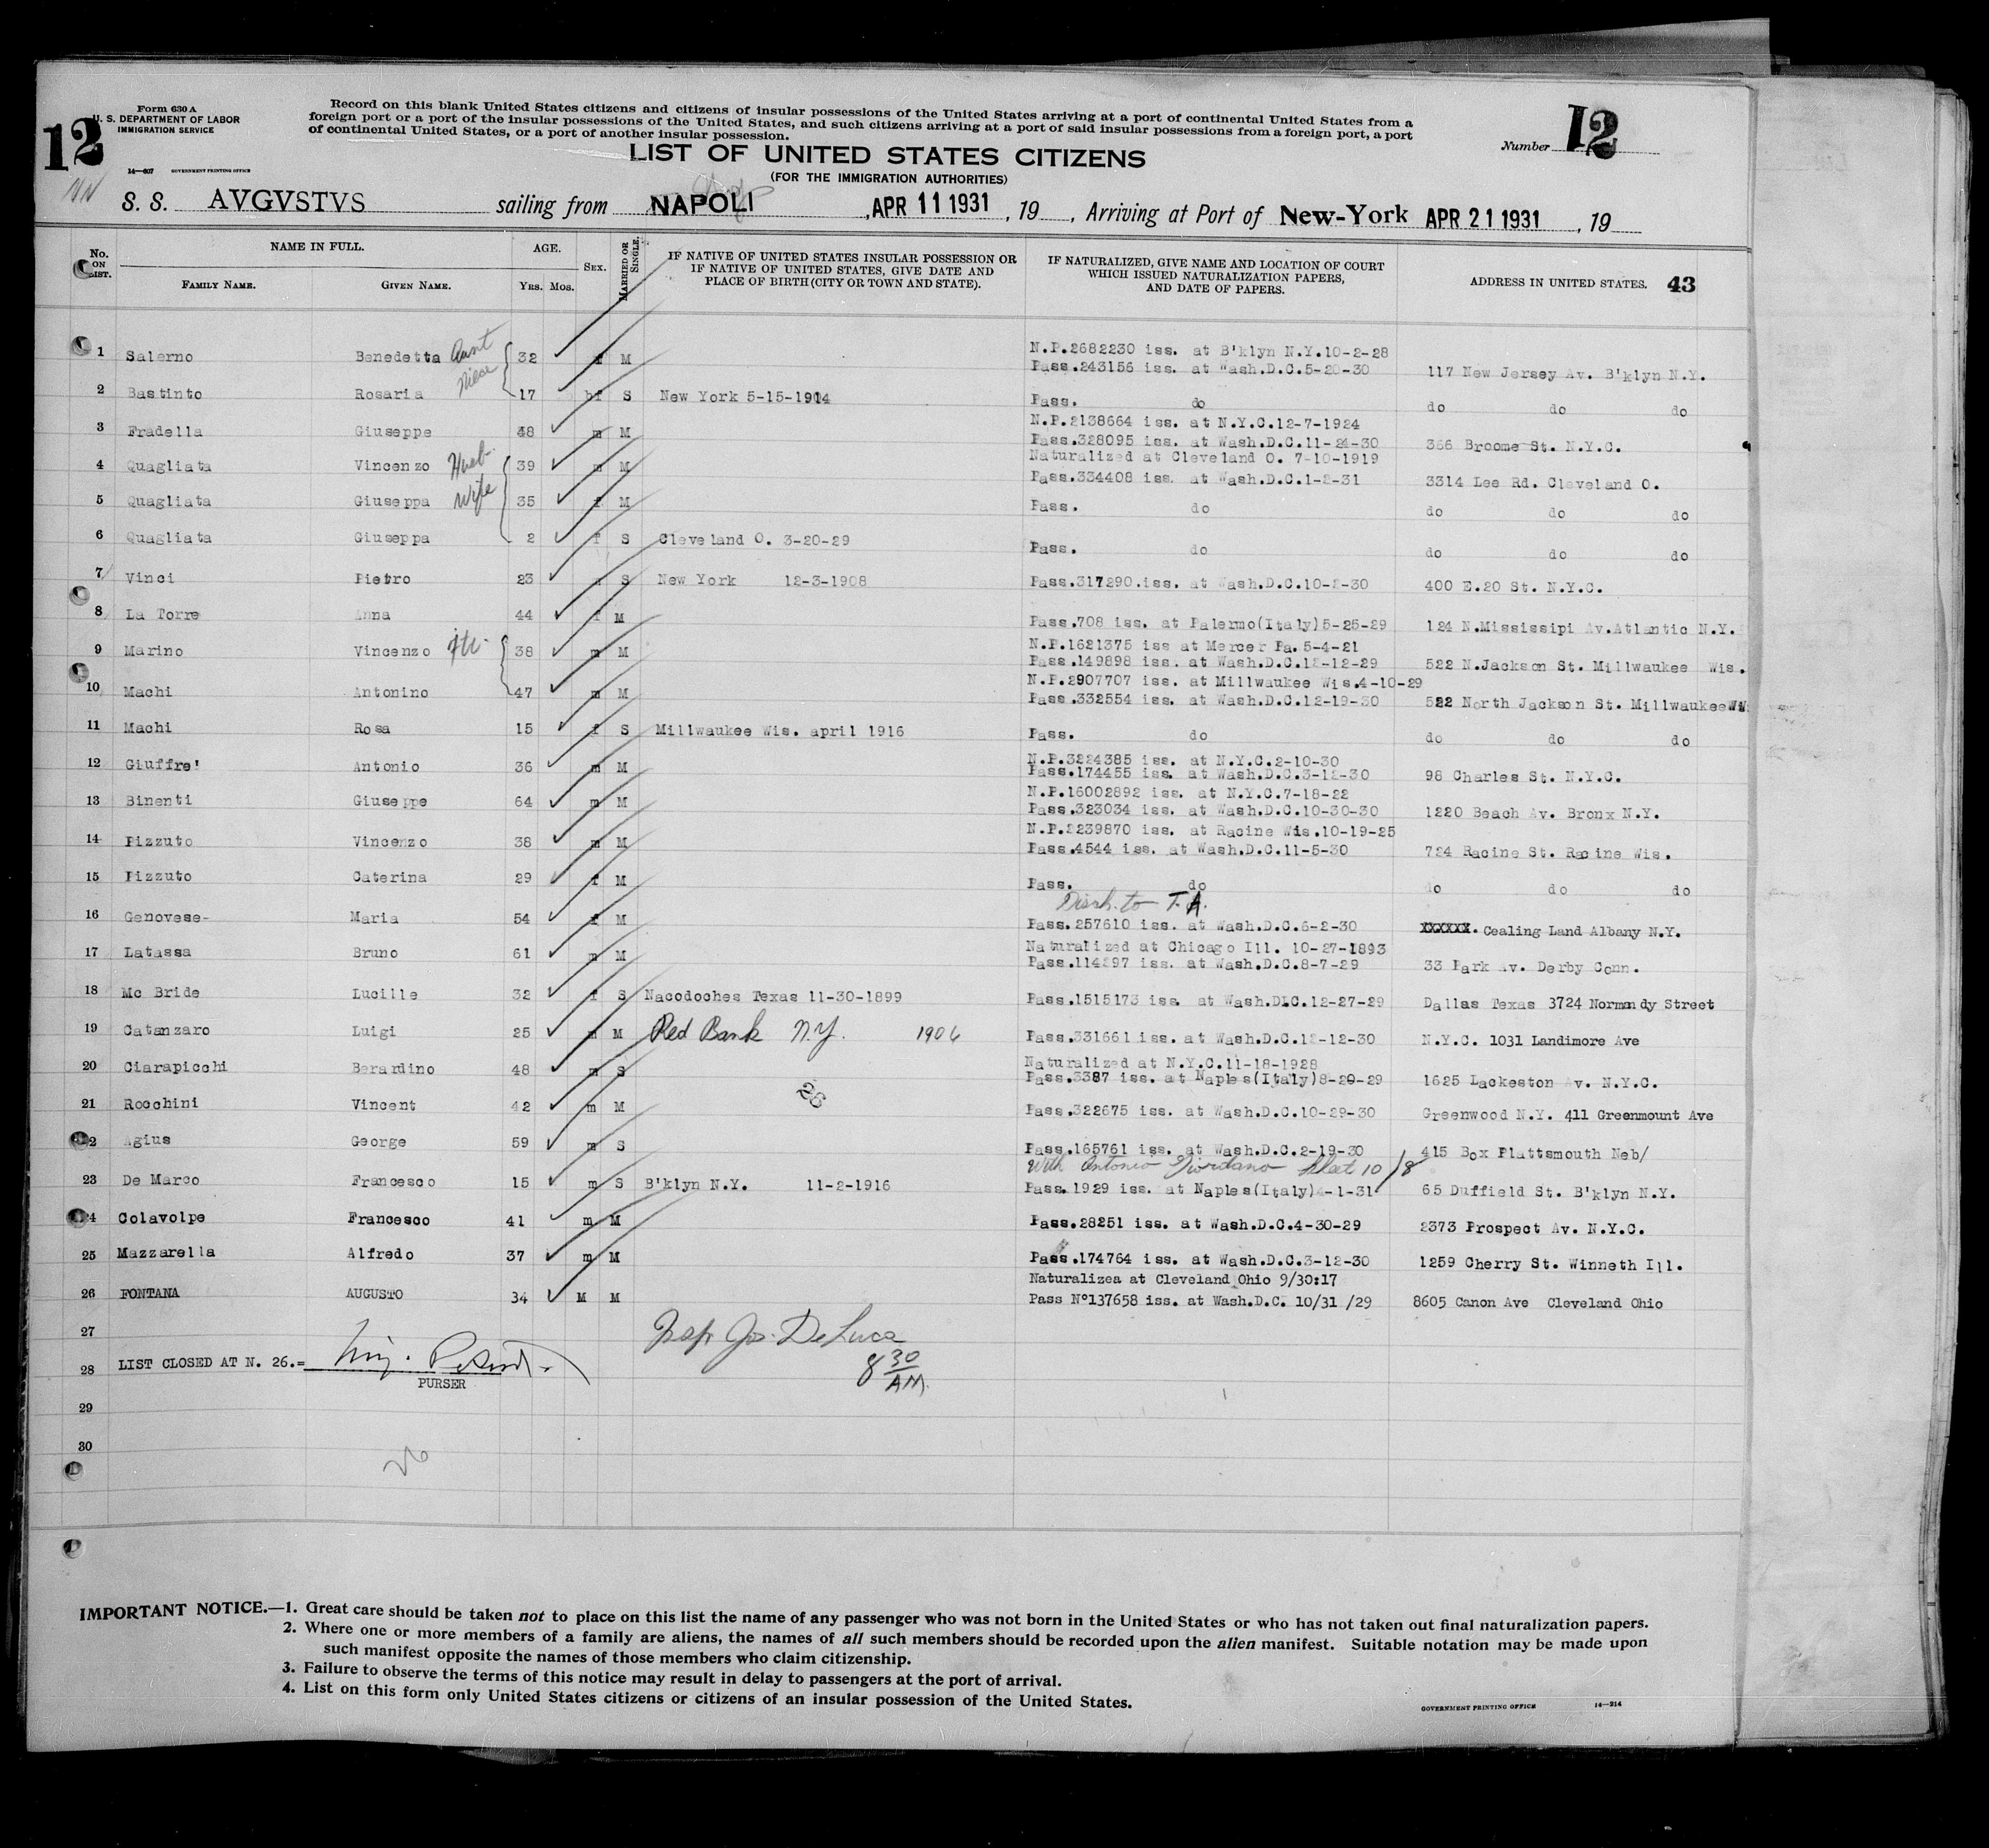 Form 630 A
U. S. DEPARTMENT OF LABOR
IMMIGRATION SERVICE
14—607 GOVERNMENT PRINTING OFFICE
12
Record on this blank United States citizens and citizens of insular possessions of the United States arriving at a port of continental United States from a
foreign port or a port of the insular possessions of the United States, and such citizens arriving at a port of said insular possessions from a foreign port, a port
of continental United States, or a port of another insular possession.
Number 12
LIST OF UNITED STATES CITIZENS
(FOR THE IMMIGRATION AUTHORITIES)
S. S. AVGVSTVS sailing from NAPOLI, APR 11 1931, 19, Arriving at Port of New-York APR 21 1931, 19
No. ON LIST. NAME IN FULL. AGE. SEX. MARRIED OR SINGLE. IF NATIVE OF UNITED STATES INSULAR POSSESSION OR IF NATIVE OF UNITED STATES, GIVE DATE AND PLACE OF BIRTH (CITY OR TOWN AND STATE). IF NATURALIZED, GIVE NAME AND LOCATION OF COURT WHICH ISSUED NATURALIZATION PAPERS, AND DATE OF PAPERS. ADDRESS IN UNITED STATES. 43
FAMILY NAME. GIVEN NAME. YRS. MOS.
N.P.2682230 iss. at B'klyn N.Y.10-2-28
1 Salerno Benedetta Aunt 32 f M Pass.243156 iss. at Wash.D.C.5-20-30 117 New Jersey Av. B'klyn N.Y.
2 Bastinto Rosaria Niece 17 f S New York 5-15-1914 Pass. do do do do
N.P.2138664 iss. at N.Y.C.12-7-1924
3 Fradella Giuseppe 48 m M Pass.328095 iss. at Wash.D.C.11-24-30 366 Broome St. N.Y.C.
Naturalized at Cleveland O. 7-10-1919
4 Quagliata Vincenzo Husb. 39 m M Pass.334408 iss. at Wash.D.C.1-2-31 3314 Lee Rd. Cleveland O.
5 Quagliata Giuseppa Wife 35 f M Pass. do do do do
6 Quagliata Giuseppa 2 f S Cleveland O. 3-20-29 Pass. do do do do
7 Vinci Pietro 23 S New York 12-3-1908 Pass.317290.iss. at Wash.D.C.10-2-30 400 E.20 St. N.Y.C.
8 La Torre Anna 44 f M Pass.708 iss. at Palermo(Italy)5-25-29 124 N.Mississipi Av.Atlantic N.Y.
N.P.1621375 iss at Mercer Pa. 5-4-21
9 Marino Vincenzo 38 m M Pass.149898 iss. at Wash.D.C.12-12-29 522 N.Jackson St. Millwaukee Wis.
N.P.2907707 iss. at Millwaukee Wis.4-10-29
10 Machi Antonino 47 m M Pass.332554 iss. at Wash.D.C.12-19-30 522 North Jackson St. Millwaukee
11 Machi Rosa 15 f S Millwaukee Wis. april 1916 Pass. do do do do
N.P.3224385 iss. at N.Y.C.2-10-30
12 Giuffre' Antonio 36 m M Pass.174455 iss. at Wash.D.C.3-12-30 98 Charles St. N.Y.C.
N.P.16002892 iss. at N.Y.C.7-18-22
13 Binenti Giuseppe 64 m M Pass.323034 iss. at Wash.D.C.10-30-30 1220 Beach Av. Bronx N.Y.
N.P.2239870 iss. at Racine Wis.10-19-25
14 Pizzuto Vincenzo 38 m M Pass.4544 iss. at Wash.D.C.11-5-30 724 Racine St. Racine Wis.
15 Pizzuto Caterina 29 f M Pass. do do do do
Disch. to T.A.
16 Genovese- Maria 54 f M Pass.257610 iss. at Wash.D.C.6-2-30 XXXXXX. Cealing Land Albany N.Y.
Naturalized at Chicago Ill. 10-27-1893
17 Latassa Bruno 61 m M Pass.114297 iss. at Wash.D.C.8-7-29 33 Park Av. Derby Conn.
18 Mc Bride Lucille 32 f S Nacodoches Texas 11-30-1899 Pass.1515173 iss. at Wash.DLC.12-27-29 Dallas Texas 3724 Normandy Street
19 Catanzaro Luigi 25 m M Red Bank N.Y. 1906 Pass.331661 iss. at Wash.D.C.12-12-30 N.Y.C. 1031 Landimore Ave
Naturalized at N.Y.C.11-18-1928
20 Ciarapicchi Berardino 48 m S Pass.3387 iss. at Naples(Italy)8-20-29 1625 Lackeston Av. N.Y.C.
26
21 Rocchini Vincent 42 m M Pass.322675 iss. at Wash.D.C.10-29-30 Greenwood N.Y. 411 Greenmount Ave
22 Agius George 59 m S Pass.165761 iss. at Wash.D.C.2-19-30 415 Box Plattsmouth Neb/
With Antonio Giordano Sheet 10/8
23 De Marco Francesco 15 m S B'klyn N.Y. 11-2-1916 Pass.1929 iss. at Naples(Italy)4-1-31 65 Duffield St. B'klyn N.Y.
24 Colavolpe Francesco 41 m M Pass.28251 iss. at Wash.D.C.4-30-29 2373 Prospect Av. N.Y.C.
25 Mazzarella Alfredo 37 m M Pass.174764 iss. at Wash.D.C.3-12-30 1259 Cherry St. Winneth Ill.
Naturalizea at Cleveland Ohio 9/30:17
26 FONTANA AUGUSTO 34 M M Pass N°137658 iss. at Wash.D.C. 10/31 /29 8605 Canon Ave Cleveland Ohio
27 Insp Jos. DeLuca
28 LIST CLOSED AT N. 26.= 8 30 AM.
PURSER
29
30
26
IMPORTANT NOTICE.—1. Great care should be taken not to place on this list the name of any passenger who was not born in the United States or who has not taken out final naturalization papers.
2. Where one or more members of a family are aliens, the names of all such members should be recorded upon the alien manifest. Suitable notation may be made upon
such manifest opposite the names of those members who claim citizenship.
3. Failure to observe the terms of this notice may result in delay to passengers at the port of arrival.
4. List on this form only United States citizens or citizens of an insular possession of the United States.
GOVERNMENT PRINTING OFFICE 14—214